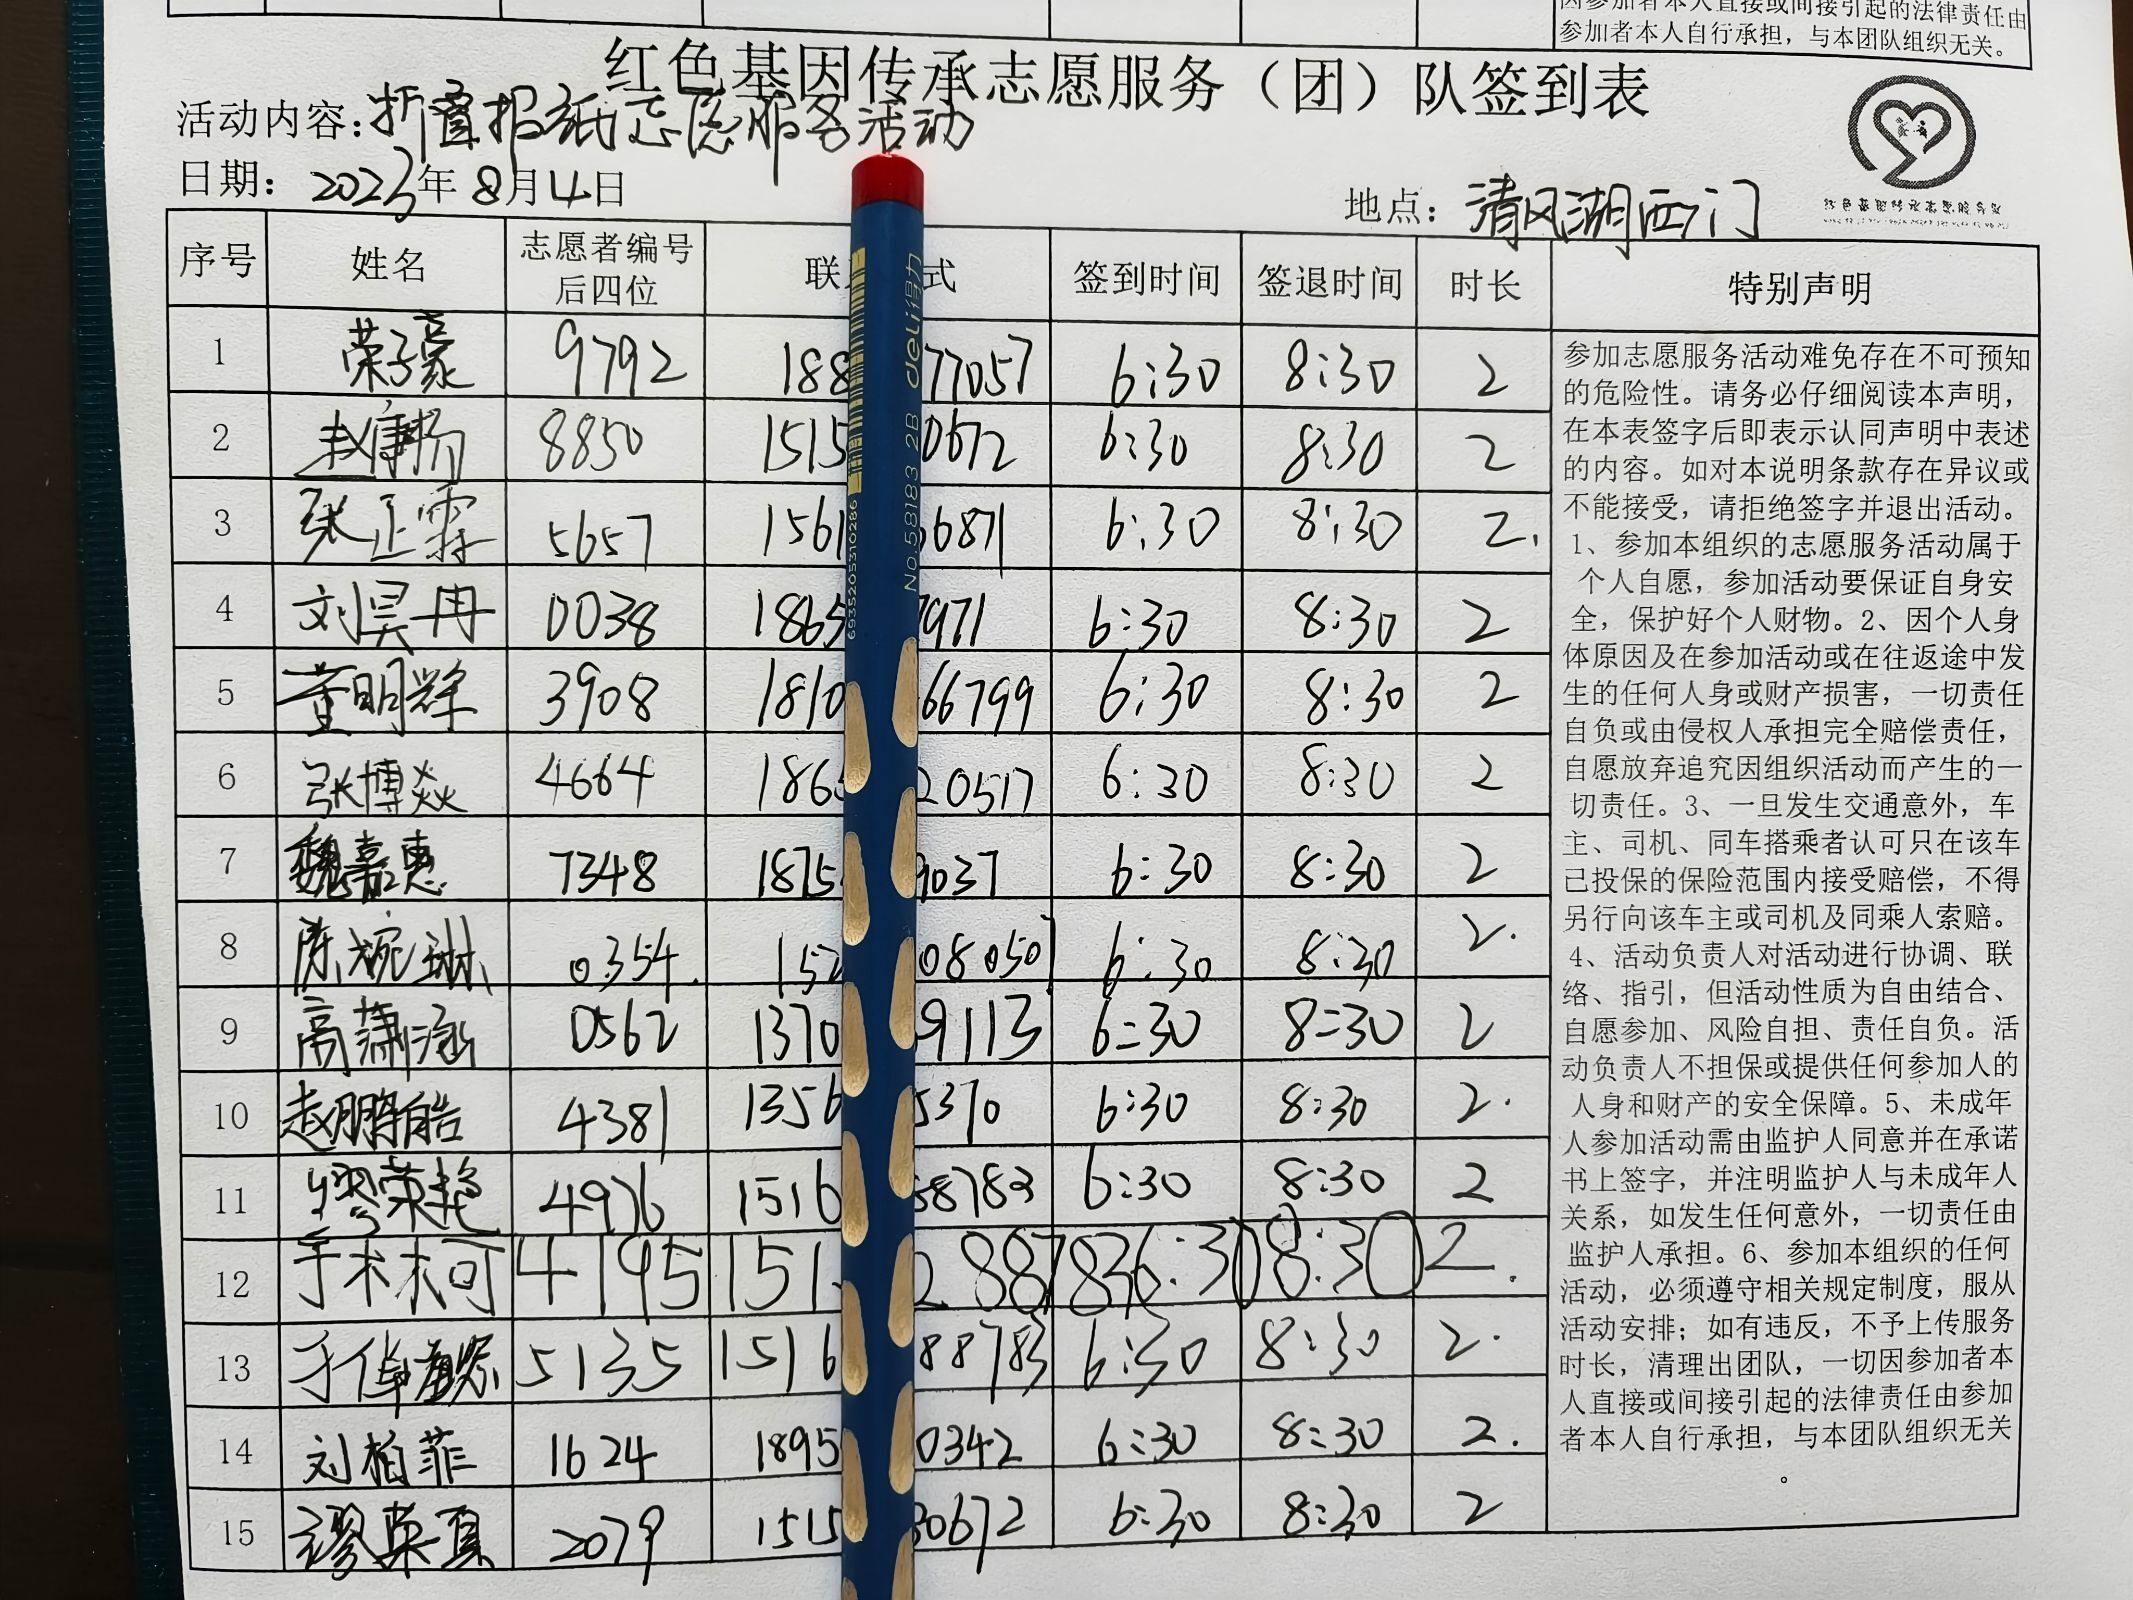 因参加者本人直接或间接引起的法律责任由
参加者本人自行承担，与本团队组织无关。
红色基因传承志愿服务（团）队签到表
活动内容：折叠报纸志愿服务活动
日期：2023年8月4日
地点：清风湖西门
序号 姓名 志愿者编号后四位 联 式 签到时间 签退时间 时长 特别声明
1 荣子豪 9792 188 77057 6:30 8:30 2
2 赵康杨 8850 1515 0672 6:30 8:30 2
3 张正霖 5657 1561 6871 6:30 8:30 2.
4 刘昊冉 0038 1865 7971 6:30 8:30 2
5 董明辉 3908 1810 66799 6:30 8:30 2
6 张博焱 4664 186 20517 6:30 8:30 2
7 魏嘉惠 7348 1875 9037 6:30 8:30 2
8 陈婉琳 0354. 152 080501 6:30 8:30 2.
9 高潇涵 0562 1370 9113 6:30 8:30 2
10 赵鹏皓 4381 1356 5370 6:30 8:30 2.
11 缪荣艳 4976 1516 88783 6:30 8:30 2
12 于术木可 4195 151 2 88783 6:30 8:30 2.
13 5135 1516 88783 6:30 8:30 2.
14 刘柏菲 1624 1895 0342 6:30 8:30 2.
15 缪英真 2079 1515 30672 6:30 8:30 2
参加志愿服务活动难免存在不可预知
的危险性。请务必仔细阅读本声明，
在本表签字后即表示认同声明中表述
的内容。如对本说明条款存在异议或
不能接受，请拒绝签字并退出活动。
1、参加本组织的志愿服务活动属于
个人自愿，参加活动要保证自身安
全，保护好个人财物。2、因个人身
体原因及在参加活动或在往返途中发
生的任何人身或财产损害，一切责任
自负或由侵权人承担完全赔偿责任，
自愿放弃追究因组织活动而产生的一
切责任。3、一旦发生交通意外，车
主、司机、同车搭乘者认可只在该车
已投保的保险范围内接受赔偿，不得
另行向该车主或司机及同乘人索赔。
4、活动负责人对活动进行协调、联
络、指引，但活动性质为自由结合、
自愿参加、风险自担、责任自负。活
动负责人不担保或提供任何参加人的
人身和财产的安全保障。5、未成年
人参加活动需由监护人同意并在承诺
书上签字，并注明监护人与未成年人
关系，如发生任何意外，一切责任由
监护人承担。6、参加本组织的任何
活动，必须遵守相关规定制度，服从
活动安排；如有违反，不予上传服务
时长，清理出团队，一切因参加者本
人直接或间接引起的法律责任由参加
者本人自行承担，与本团队组织无关
。
deli得力
No.58183 2B
6935205310286